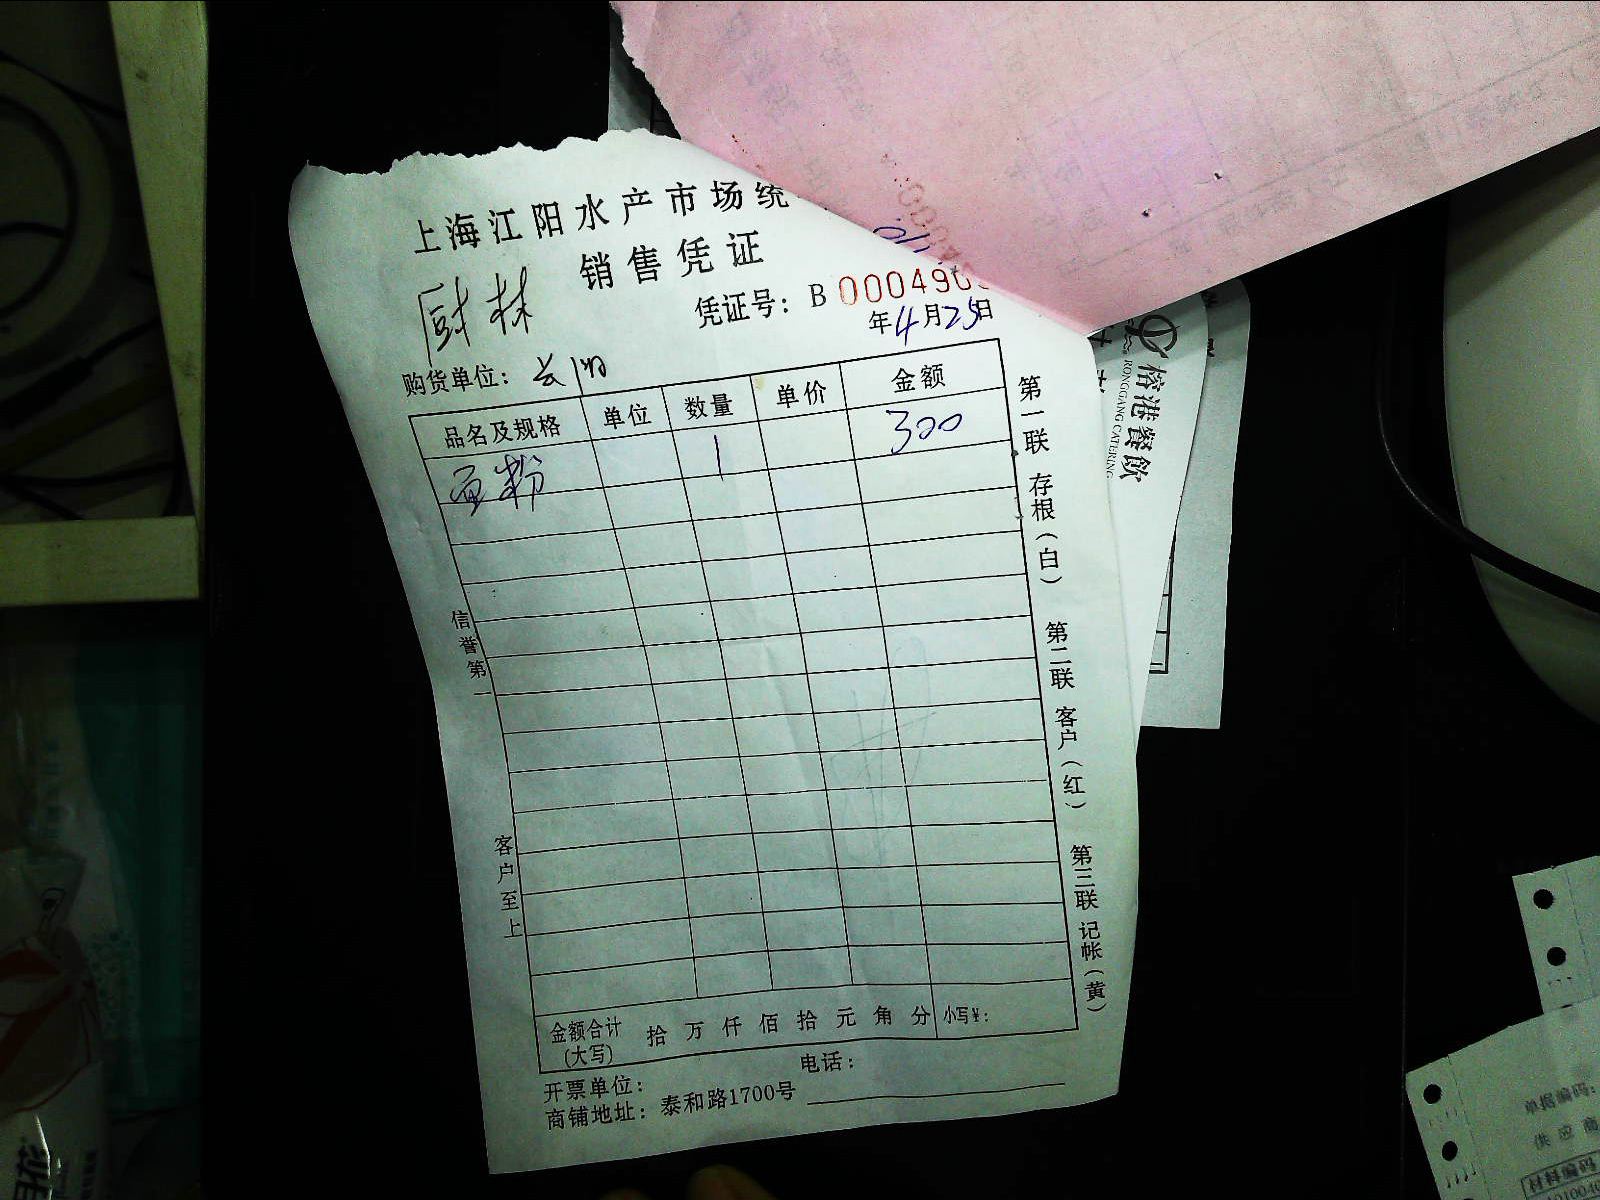 上海江阳水产市场统
销售凭证
凭证号：B 000490
年4月25日
购货单位：
品名及规格 单位 数量 单价 金额
粉 1 300
金额合计(大写) 拾 万 仟 佰 拾 元 角 分 小写¥：
开票单位： 电话：
商铺地址：泰和路1700号
信誉第一
客户至上
第一联 存根（白）
第二联 客户（红）
第三联 记帐（黄）
榕港餐飲
RONGGANG CATERING
单据编码：
供应商
材料编码